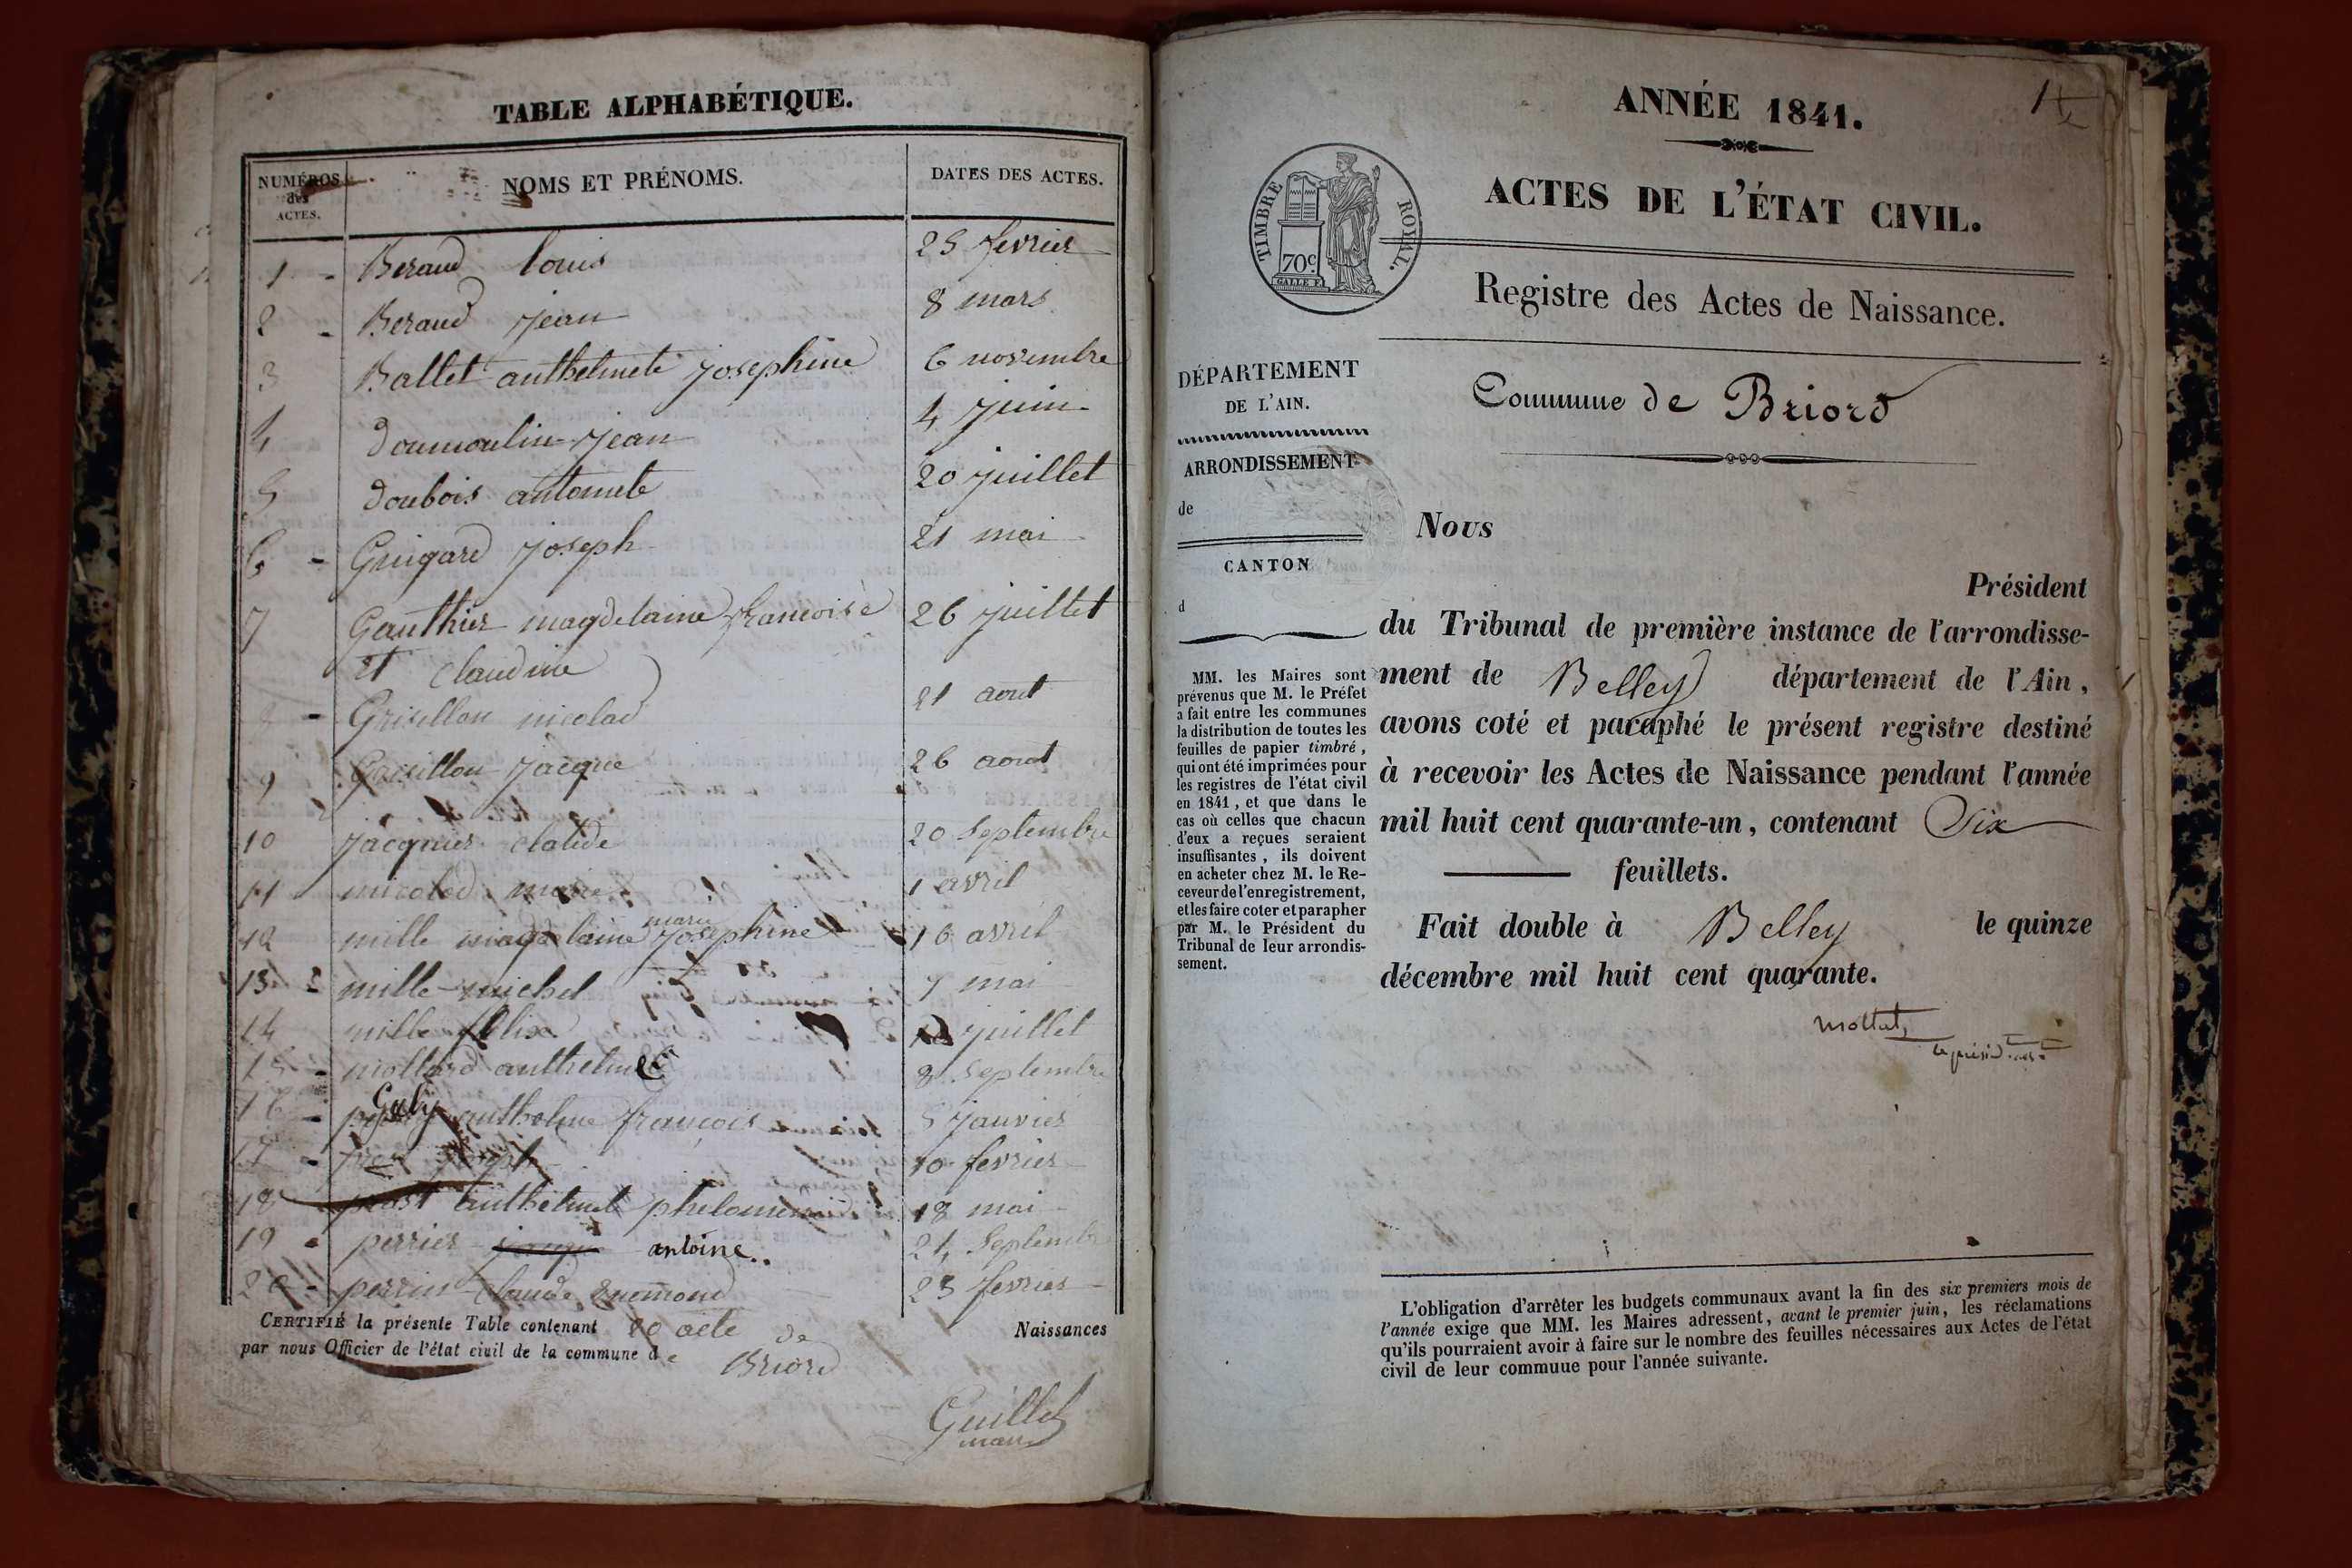 TABLE ALPHABÉTIQUE.
NUMÉROS des ACTES.
NOMS ET PRÉNOMS.
DATES DES ACTES.
1 - Beraud louis 25 fevrier
2 - Beraud jean 8 mars
3 Ballet anthelmete josephine 6 novembre
4 doumoulin jean 4 juin
5 doubois antoinete 20 juillet
6 - Guigard joseph 21 mai
7 Gauthier magdelaine francoise 26 juillet
et claudine
8 - Grisillon nicolad 21 aout
9 Grisillon jacque 26 aout
10 jacquier claude 20 Septembre
11 nicolod marie 1 avril
12 mille magdelaine marie josephine 16 avril
13 mille michel 7 mai
14 mille felix juillet
15 - mollard anthelme 8 Septembre
16 - Guly anthelme françois 5 janvier
17 - joseph 10 fevrier
18 prost anthelmete phelomene 18 mai
19 perrier antoine.. 24 Septembre
20 - perrin claude 23 fevrier
CERTIFIÉ la présente Table contenant 20 acte de Naissances
par nous Officier de l'état civil de la commune de Briord
Guillet
maire
1
ANNÉE 1841.
ACTES DE L'ÉTAT CIVIL.
TIMBRE ROYAL.
70c
Registre des Actes de Naissance.
DÉPARTEMENT
DE L'AIN.
ARRONDISSEMENT
de
CANTON
d
MM. les Maires sont
prévenus que M. le Préfet
a fait entre les communes
la distribution de toutes les
feuilles de papier timbré,
qui ont été imprimées pour
les registres de l'état civil
en 1841, et que dans le
cas où celles que chacun
d'eux a reçues seraient
insuffisantes, ils doivent
en acheter chez M. le Re-
ceveur de l'enregistrement,
et les faire coter et parapher
par M. le Président du
Tribunal de leur arrondis-
sement.
Commune de Briord
Nous
Président
du Tribunal de première instance de l'arrondisse-
ment de Belley département de l'Ain,
avons coté et paraphé le présent registre destiné
à recevoir les Actes de Naissance pendant l'année
mil huit cent quarante-un, contenant Six
feuillets.
Fait double à Belley le quinze
décembre mil huit cent quarante.
mollet,
L'obligation d'arrêter les budgets communaux avant la fin des six premiers mois de
l'année exige que MM. les Maires adressent, avant le premier juin, les réclamations
qu'ils pourraient avoir à faire sur le nombre des feuilles nécessaires aux Actes de l'état
civil de leur commuue pour l'année suivante.